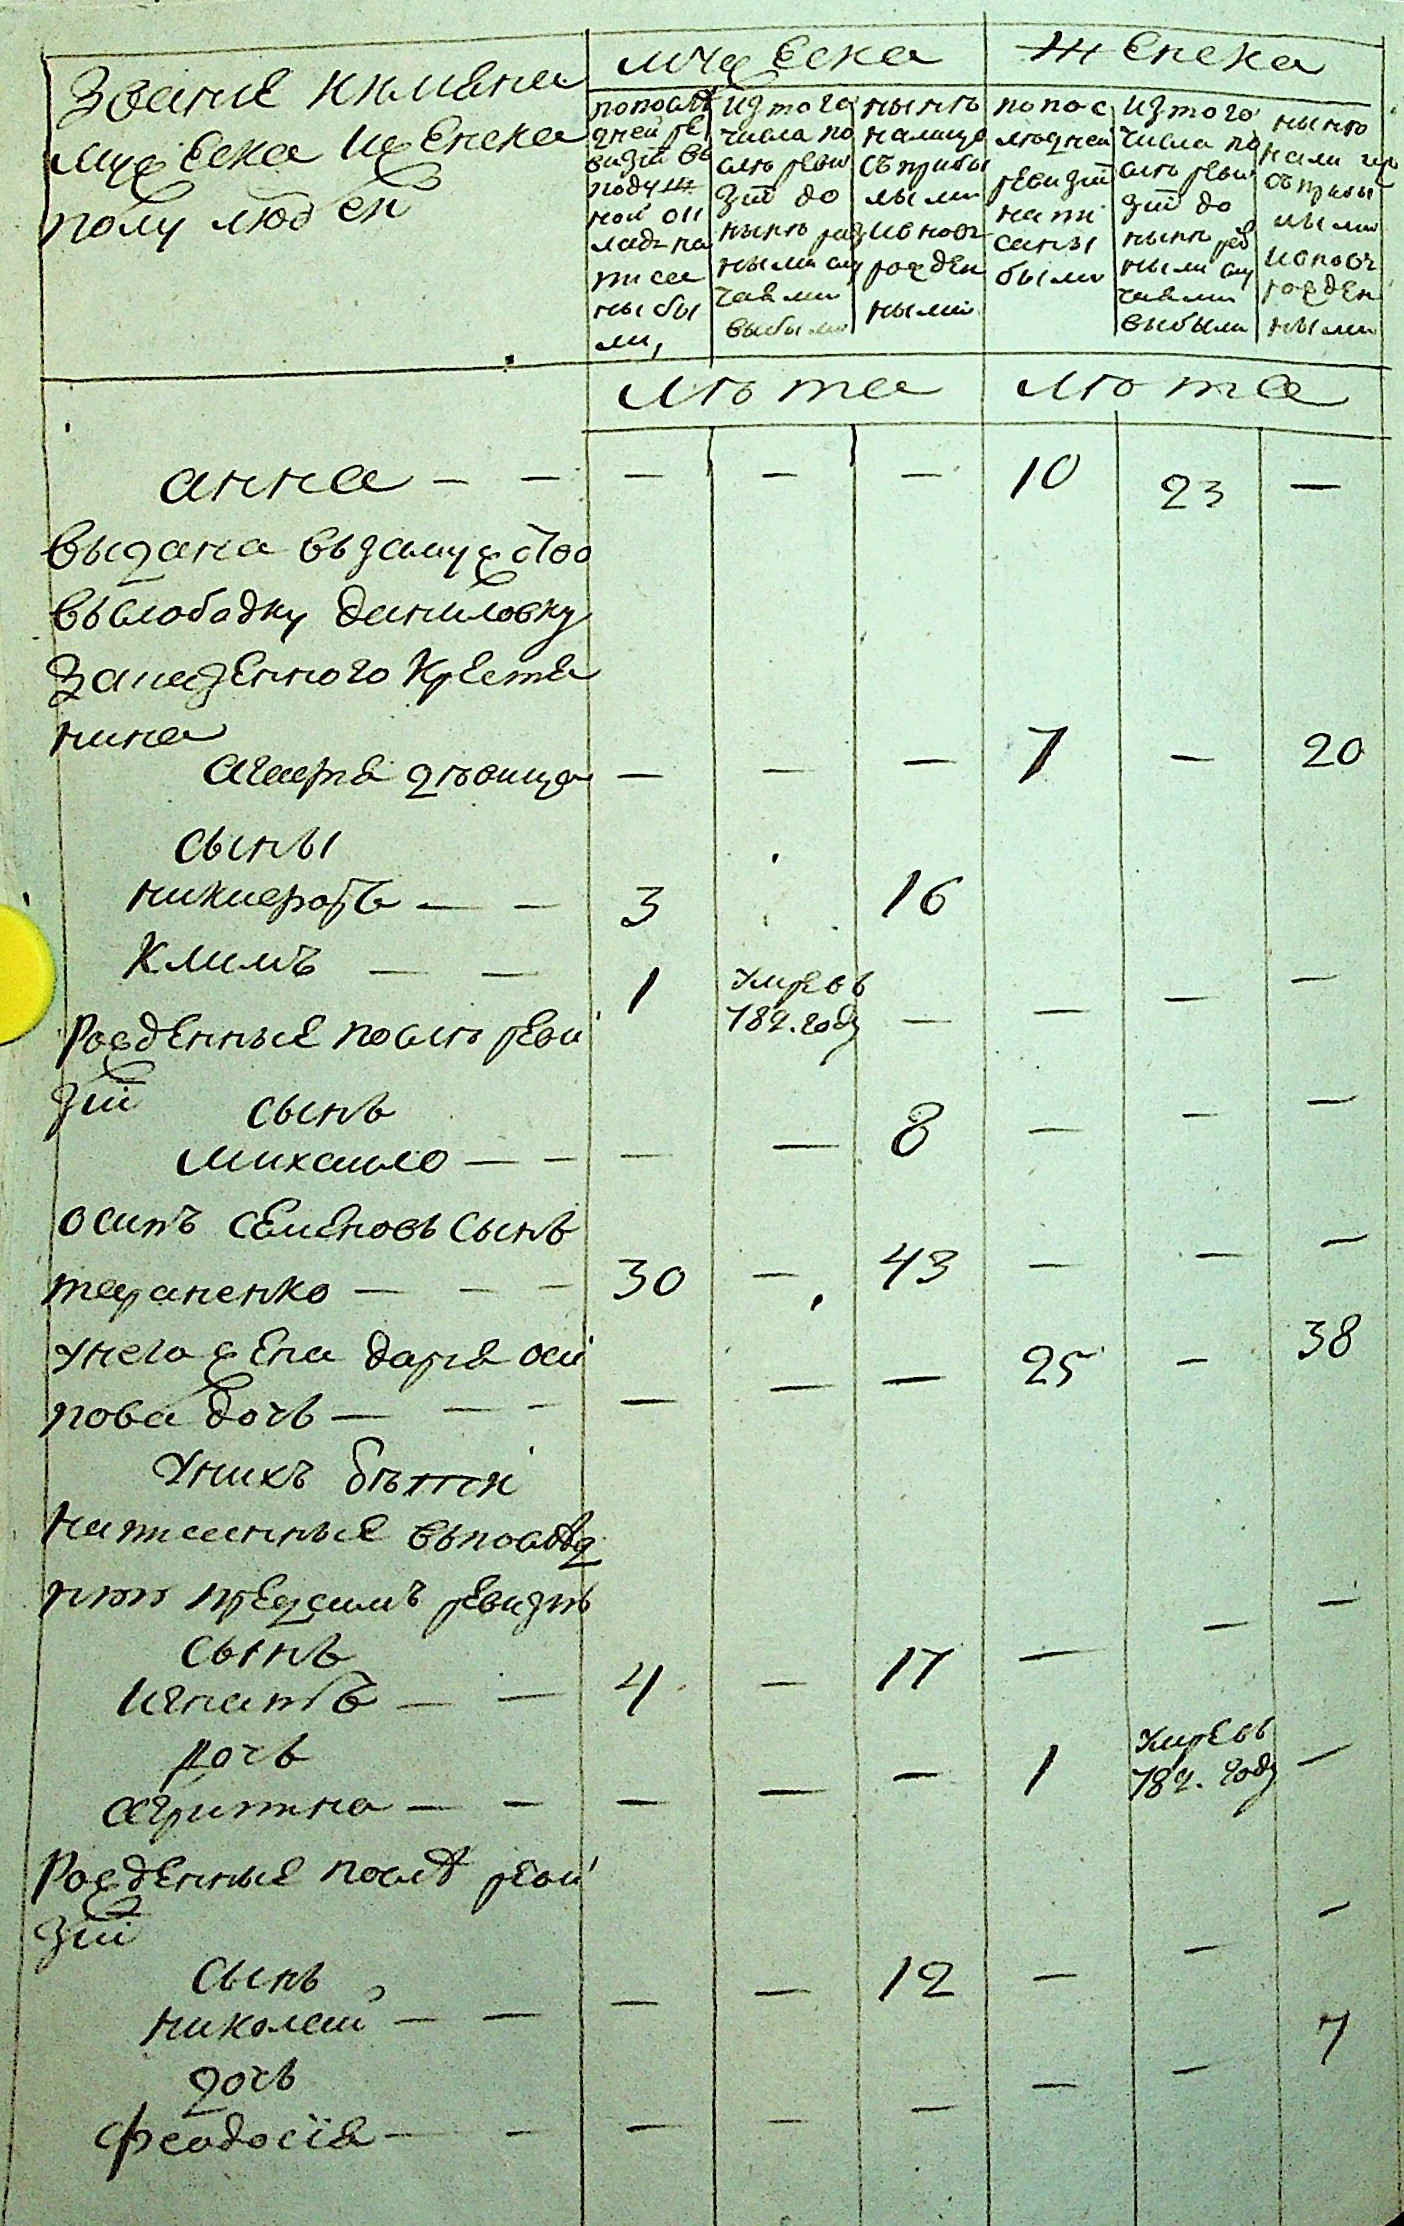 Званіе и имѧна
мужеска и женска
полу людеи
мужеска
женска
по послѣ
дней ре
визіи въ
подуш
ной ок
ладъ на
писа
ны бы
ли,
из того
числа по
слѣ реви
зіи до
нынѣ раз
ными слу
чаями
выбыли
нынѣ
налицо
съ прибы
лыми
и вновь
рожден
ными
по пос
лѣдней
ревизіи
напи
саны
были
из того
числа по
слѣ реви
зіи до
нынѣ раз
ными слу
чаями
выбыли
нынѣ
налицо
съ прибы
лыми
и вновь
рожден
ными
лѣта лѣта
анна — — — — — 10 23 —
выдана въ замужство
въ слободку даниловку
за казенного крестѧ
нина
агафіѧ дѣвица — — — 7 — 20
сыны
никифоръ — — 3 16
Климъ — — 1 умре въ 782. году — — — —
Рожденные послѣ реви
зіи сынъ
михаило — — — — 8 — — —
осипъ семеновъ сынъ
тараненко — — — 30 — 43 — — —
у него жена дарьѧ оси
пова дочь — — — — — — 25 — 38
у нихъ дѣти
написанные въ послѣд
нѣй предъ симъ ревизіи
сынъ
игнатъ — — 4 — 17 — — —
дочь
агрипина — — — — — 1 умре въ 782. году —
Рожденные послѣ реви
зіи
сынъ
николай — — — — 12 — — —
дочь
феодосіѧ — — — — — — — 7